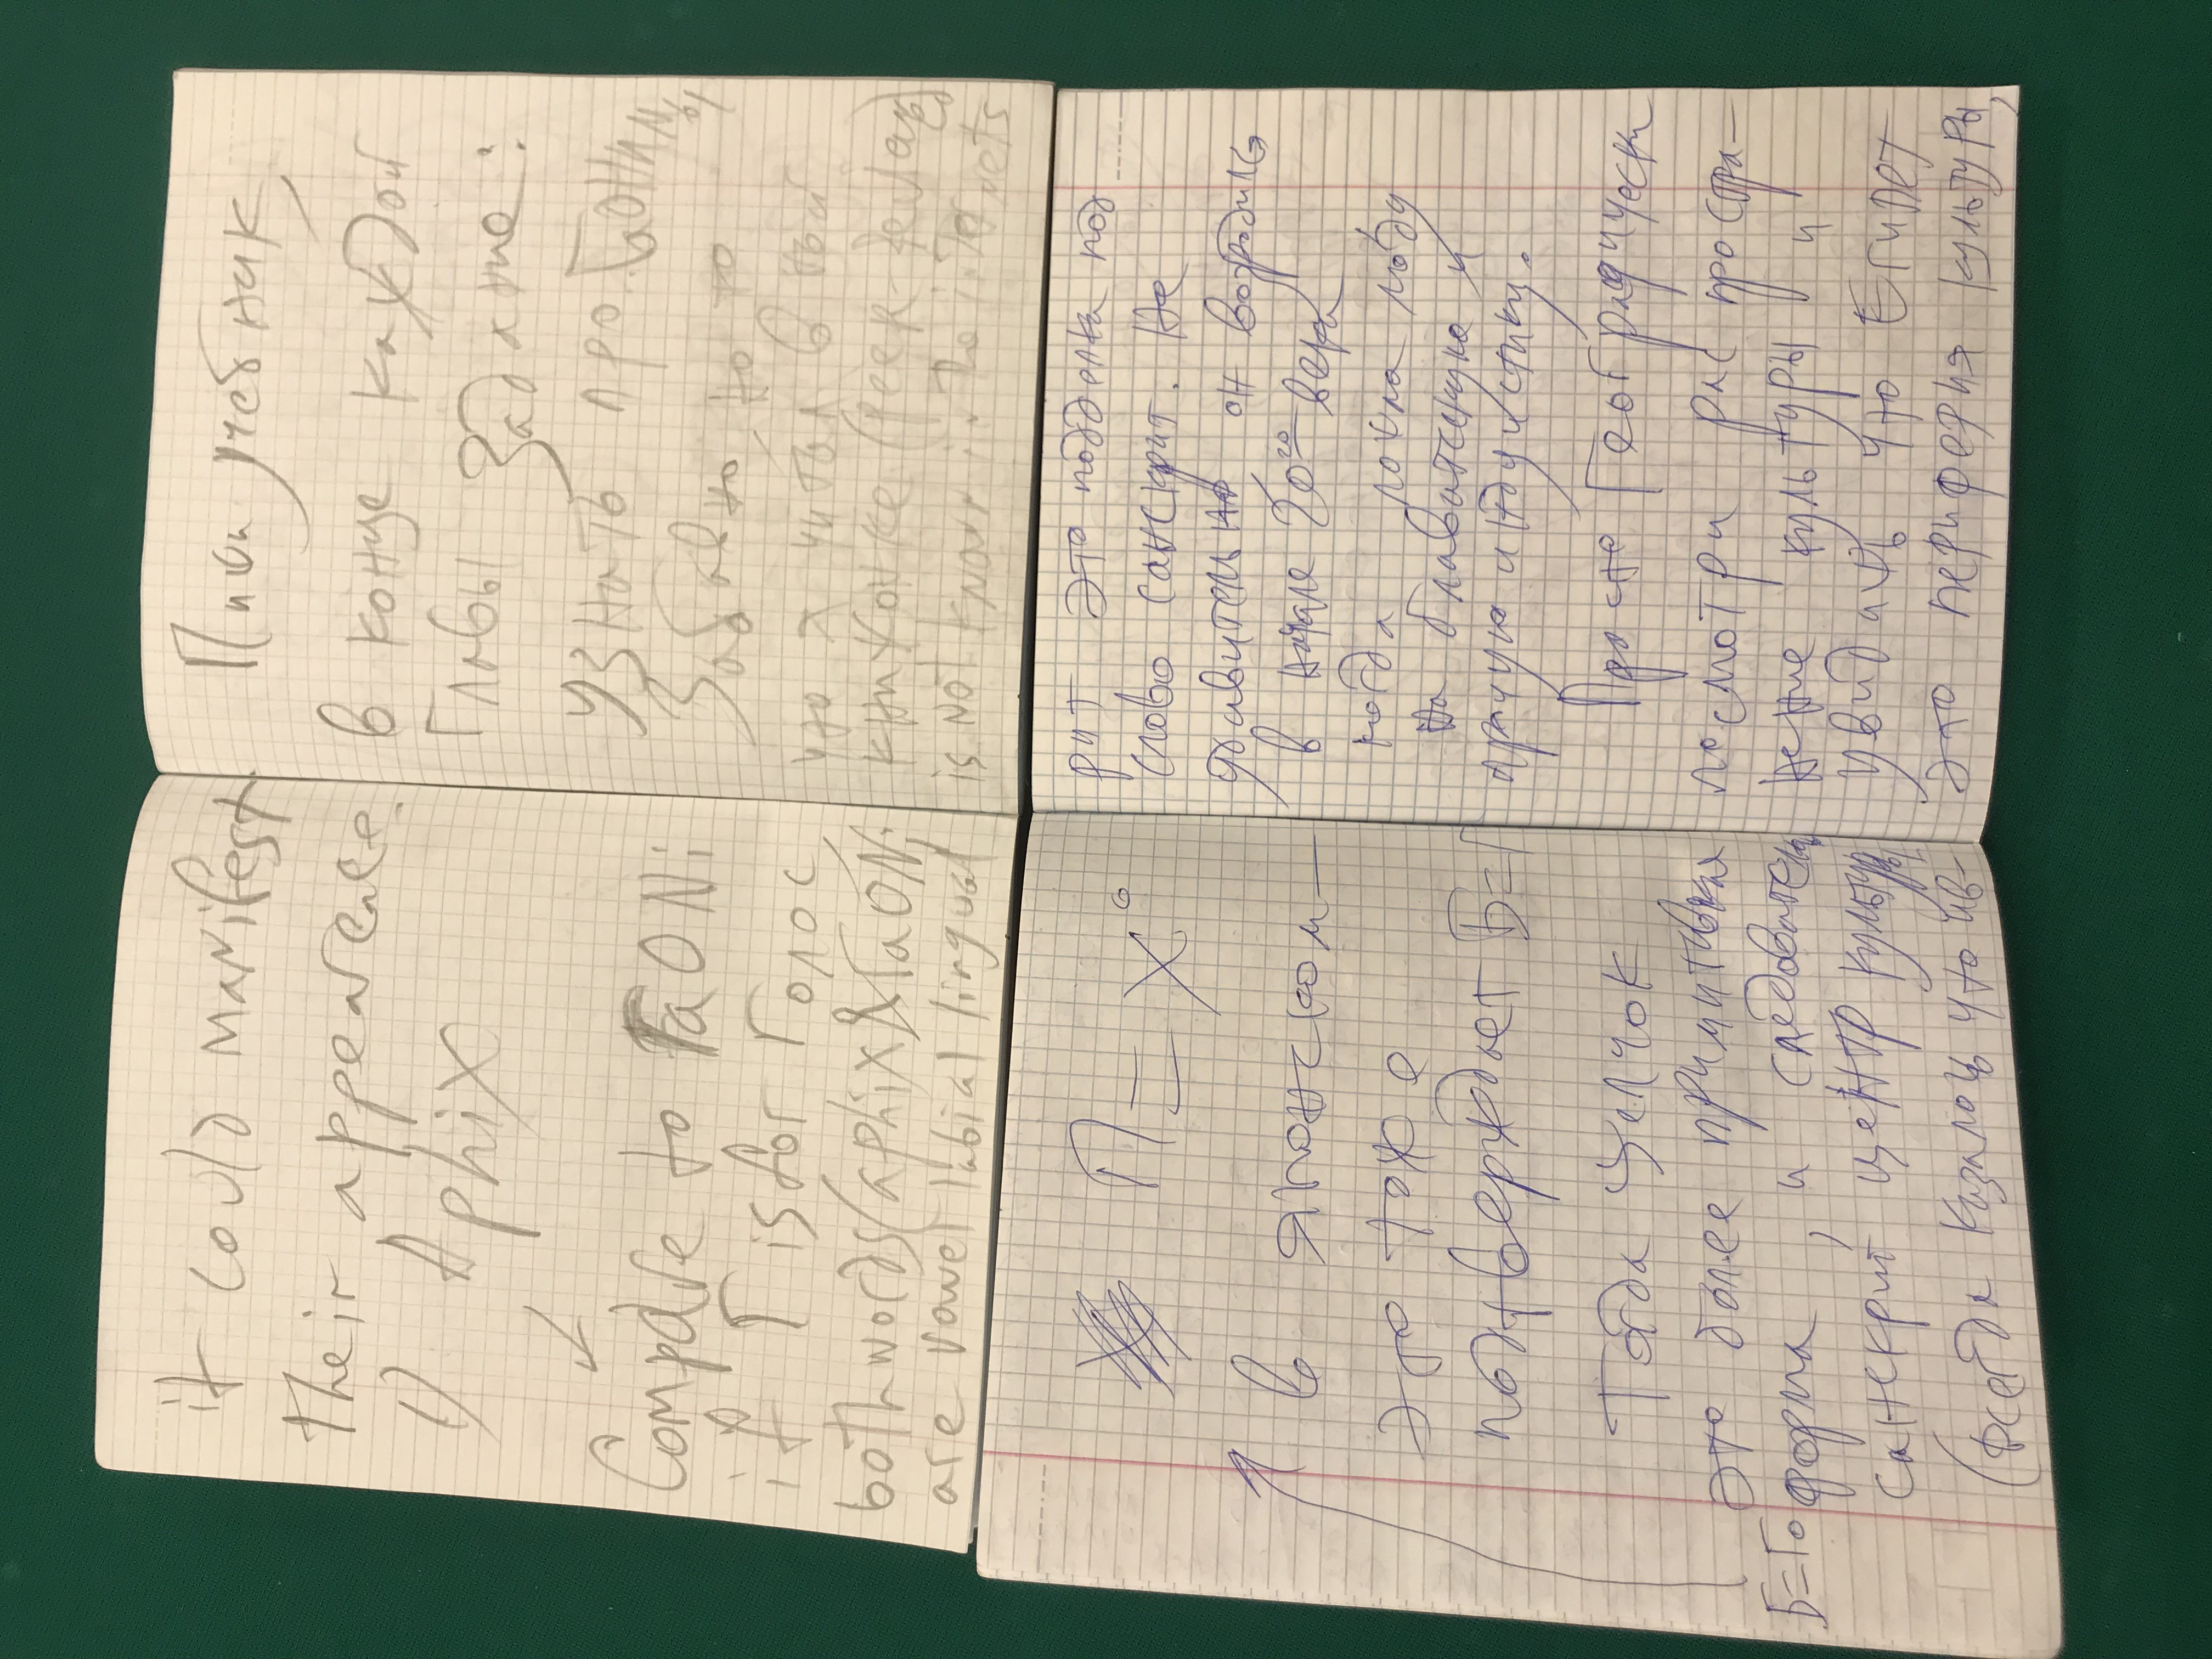 it could manifest
their appearence.
1) Aphix
Compare to ГаONi
if Г is for Голос,
both words (aphix & ГаONi
are vowel labial lingual
Пиши учебник,
в конце каждой
главы задание:
узнать про
Забавно, но то
что я читал в той
книжонке (peer-
is not known in to internets
П = X°
в японском —
это тоже
подтверждает Б=Г
Тогда щелчок
это более примитивная
Б=Го форма, и следовательно
санскрит центр культуры
(всегда казалось что ив-
рит это подделка под
слово санскрит. Не
удивительно, он возродился
в начале 20го века
когда пошла мода
на блаватскую и
прочую индуистику.
Просто Географически
посмотри распростра-
нение культуры и
увидишь что Египет
это периферия культуры,